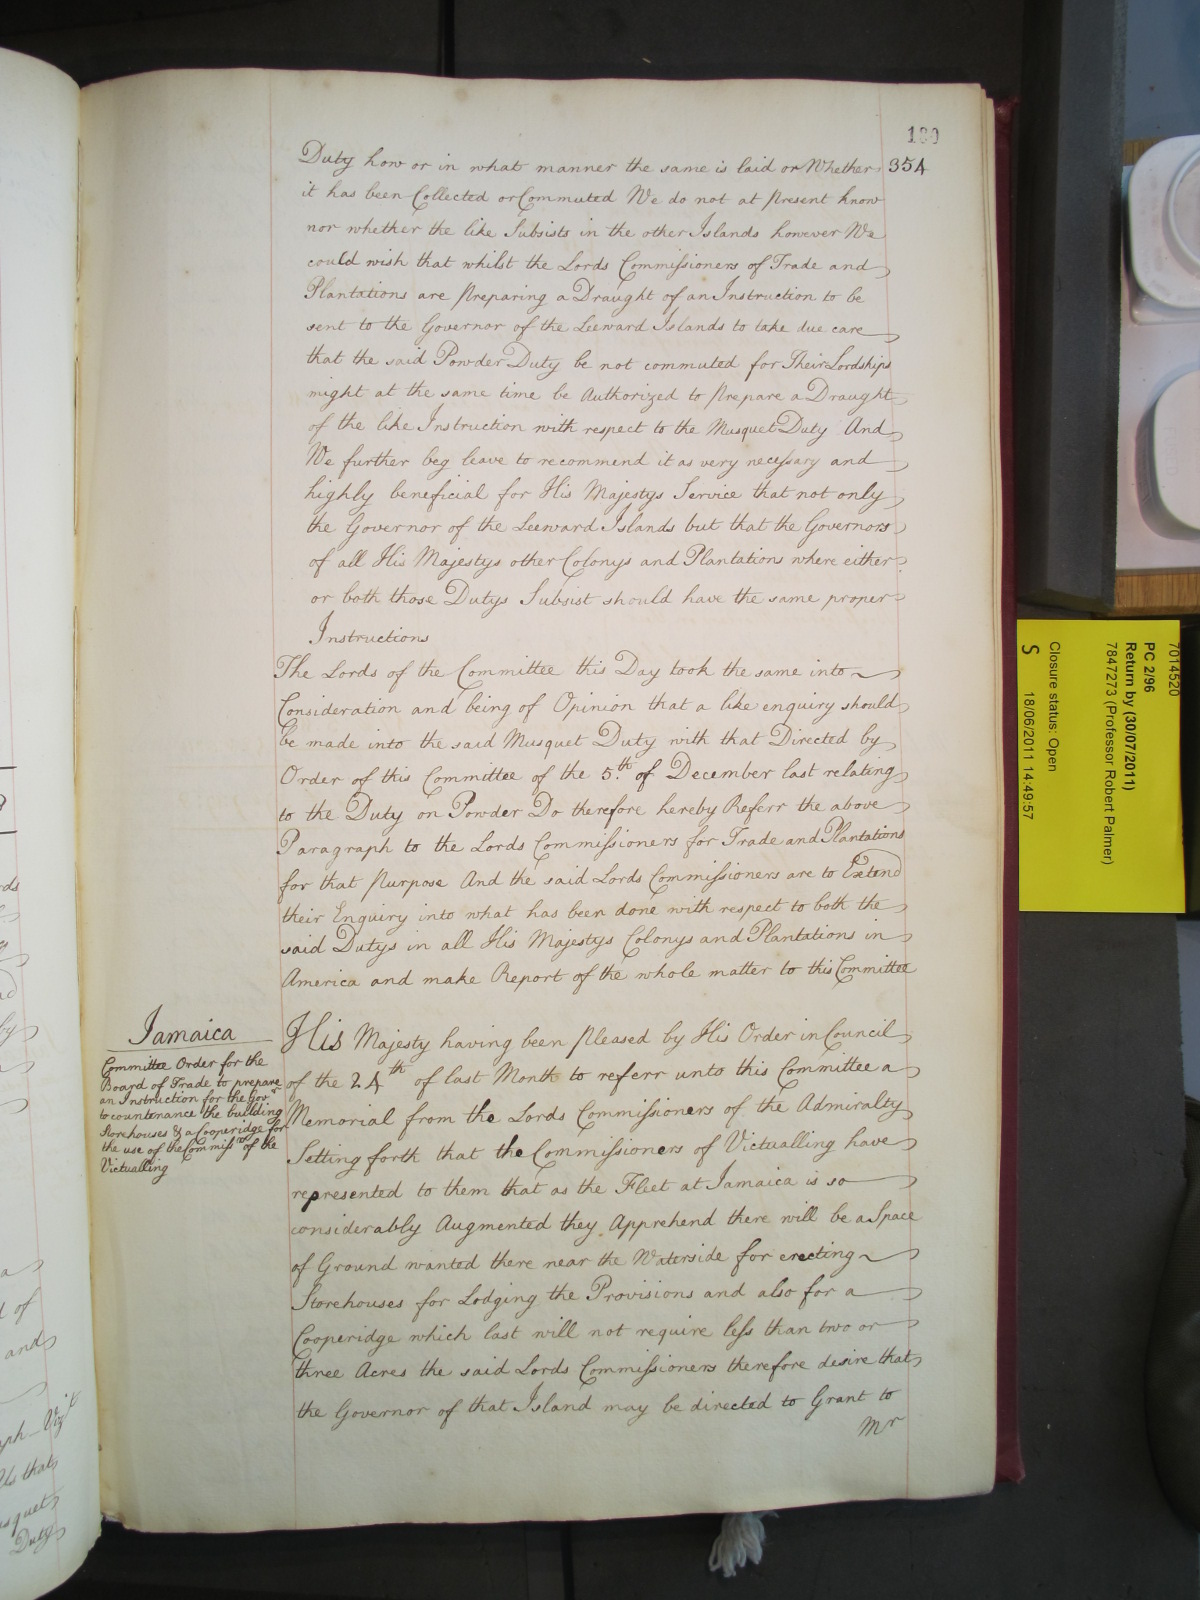 180
354
Duty how or in what manner the same is laid or Whether
it has been Collected or Commuted We do not at Present know
nor whether the like Subsists in the other Islands however We
could wish that whilst the Lords Commissioners of Trade and
Plantations are Preparing a Draught of an Instruction to be
sent to the Governor of the Leeward Islands to take due care
that the said Powder Duty be not commuted for Their Lordships
might at the same time be Authorized to Prepare a Draught
of the like Instruction with respect to the Musquet Duty And
We further beg leave to recommend it as very necessary and
highly beneficial for His Majestys Service that not only
the Governor of the Leeward Islands but that the Governors
of all His Majestys other Colonys and Plantations where either
or both those Dutys Subsist should have the same proper
Instructions
The Lords of the Committee this Day took the same into
Consideration and being of Opinion that a like enquiry should
be made into the said Musquet Duty with that Directed by
Order of this Committee of the 5.th of December last relating
to the Duty on Powder Do therefore hereby Referr the above
Paragraph to the Lords Commissioners for Trade and Plantations
for that Purpose And the said Lords Commissioners are to Extend
their Enquiry into what has been done with respect to both the
said Dutys in all His Majestys Colonys and Plantations in
America and make Report of the whole matter to this Committee
Jamaica
Committee Order for the
Board of Trade to prepare
an Instruction for the Gov.r
to countenance the building
Storehouses & a Cooperidge for
the use of the Commiss.rs of the
Victualling
His Majesty having been Pleased by His Order in Council
of the 24th of last Month to referr unto this Committee a
Memorial from the Lords Commissioners of the Admiralty
Setting forth that the Commissioners of Victualling have
represented to them that as the Fleet at Jamaica is so
considerably Augmented they Apprehend there will be a Space
of Ground wanted there near the Waterside for erecting
Storehouses for Lodging the Provisions and also for a
Cooperidge which last will not require less than two or
three Acres the said Lords Commissioners therefore desire that
the Governor of that Island may be directed to Grant to
Mr
7014520
PC 2/96
Return by (30/07/2011)
7847273 (Professor Robert Palmer)
Closure status: Open
S 18/06/2011 14:49:57
by
a
of
and
that
Duty